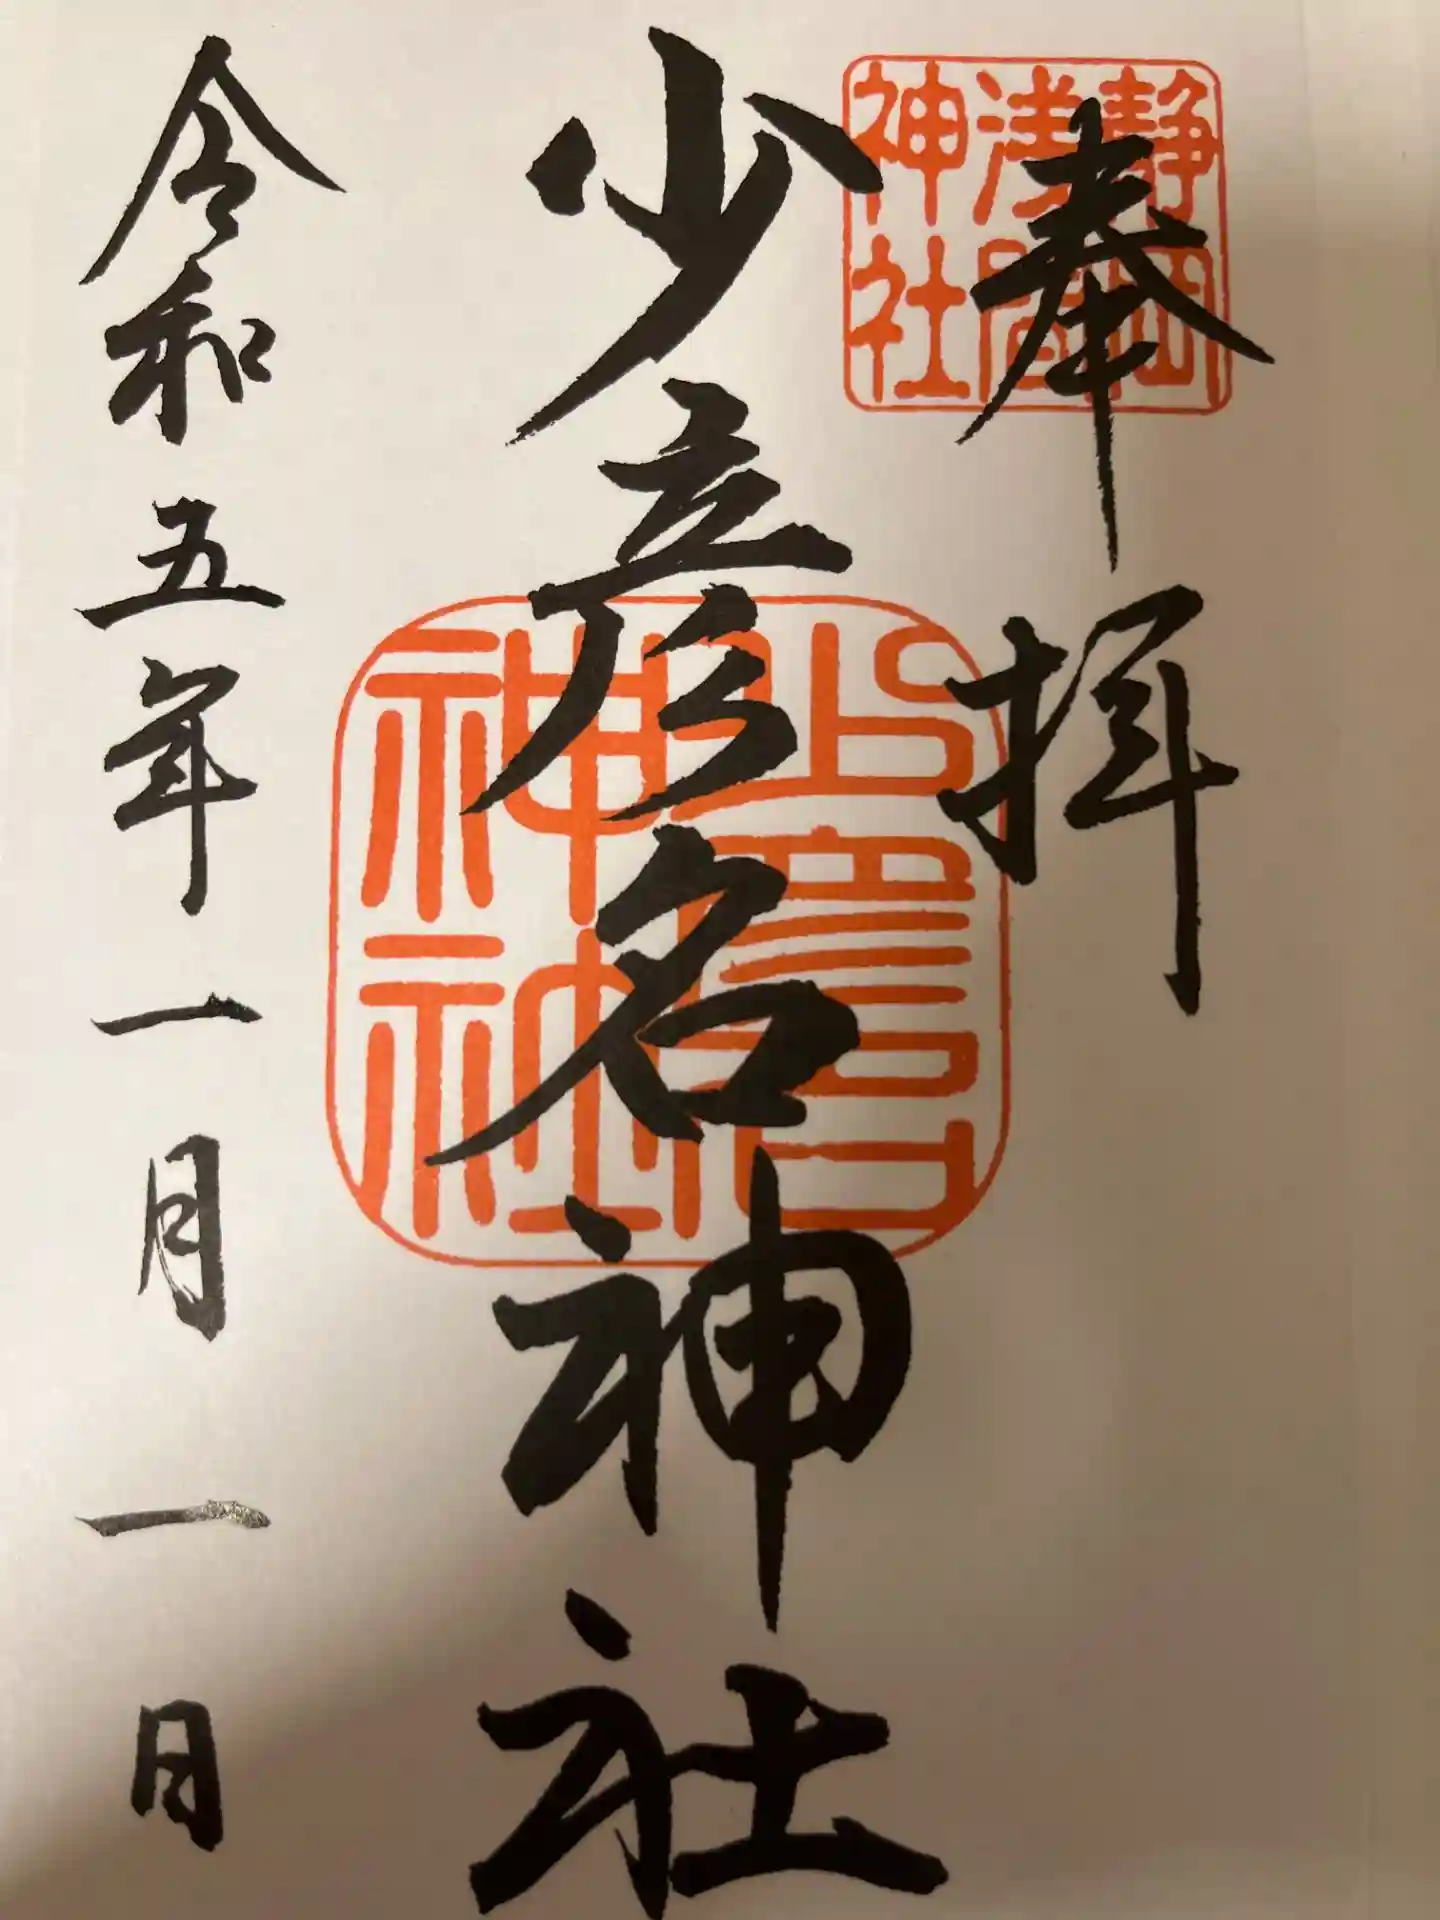 奉拝
静岡
浅間
神社
少彦名神社
神社
令和五年一月一日